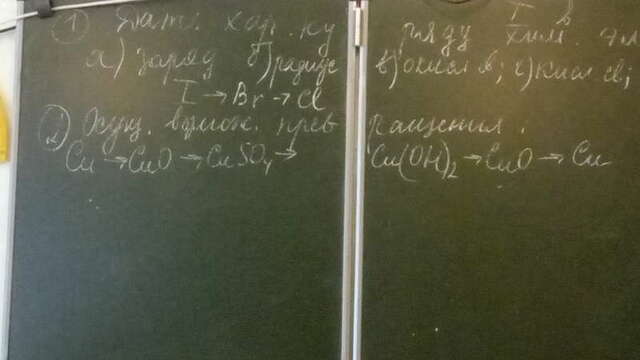 ① Дать хар-ку ряду I хим. эл. в
а) заряд б) радиус в) окисл. св; г) кисл. св;
I → Br → Cl
② Осущ. возмож. превращения:
Cu → CuO → CuSO₄ → Cu(OH)₂ → CuO → Cu